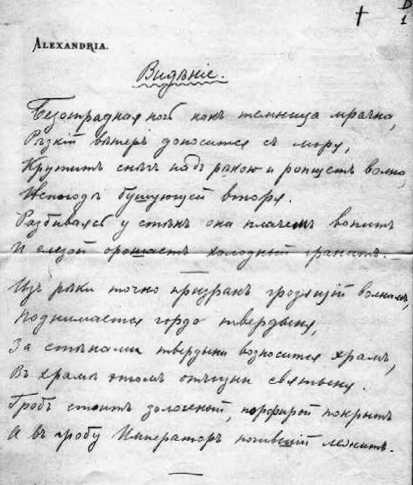 B
1
ALEXANDRIA.
Видѣніе.
Безотрадная ночь какъ темница мрачна,
Рѣзкій вѣтеръ доносится съ моря,
Крутитъ снѣгъ надъ рѣкою и ропщетъ волна
Непогодѣ бушующей вторя.
Разбиваясь у стѣнъ она плачетъ вопитъ
И слезой орошаетъ холодный гранитъ.
Изъ рѣки точно призракъ грозящій волнамъ,
Поднимается гордо твердыня,
За стѣнами твердыни возносится храмъ,
Въ храмѣ этомъ отчизны святыня.
Гробъ стоитъ золоченый, порфирой покрытъ
А въ гробу Императоръ почившій лежитъ.